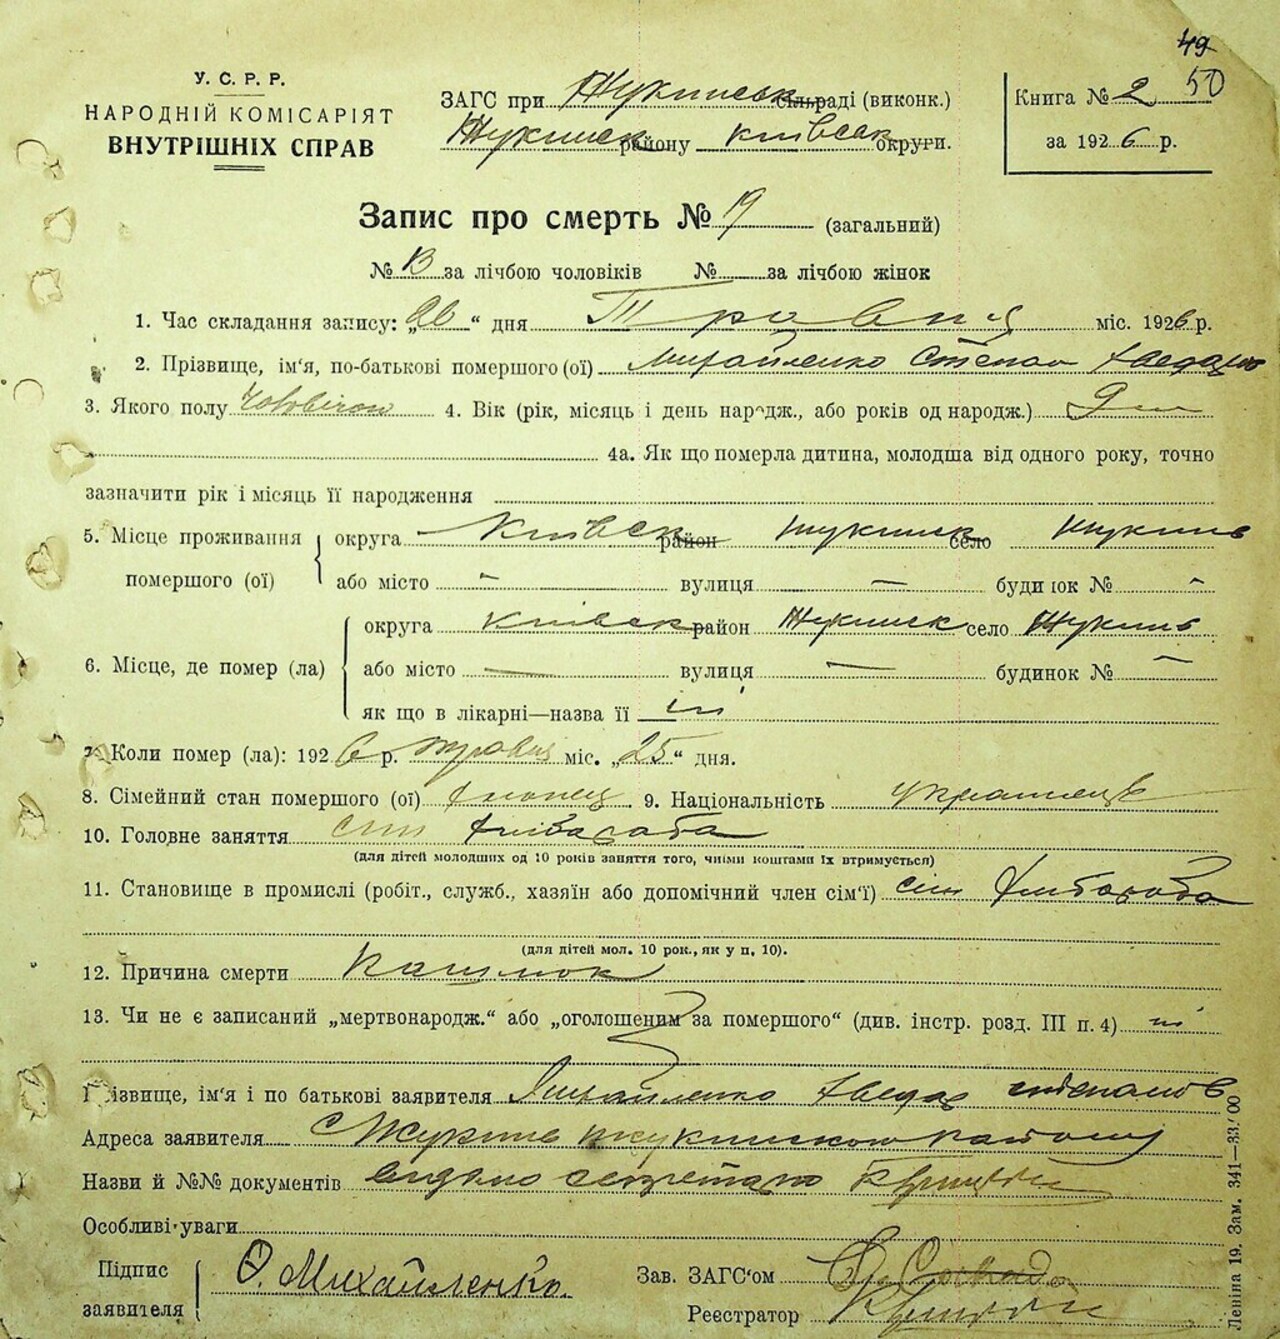 49
50
У. С. Р. Р.
НАРОДНІЙ КОМІСАРІЯТ
ВНУТРІШНІХ СПРАВ
ЗАГС при Жукинськ сільраді (виконк.)
Жукинск району Київськ округи.
Книга № 2
за 1926 р.
Запис про смерть № 19 (загальний)
№ 13 за лічбою чоловіків № за лічбою жінок
1. Час складання запису: „26“ дня Травня міс. 1926 р.
2. Прізвище, ім'я, по-батькові помершого (ої) Михайленко Степан
3. Якого полу 4. Вік (рік, місяць і день нар дж., або років од народж.)
4а. Як що померла дитина, молодша від одного року, точно
зазначити рік і місяць її народження
5. Місце проживання помершого (ої) округа Київськ район Жукинск село Жукинь
або місто — вулиця — будинок № -
6. Місце, де помер (ла) округа Київськ район Жукинск село Жукинь
або місто — вулиця — будинок № —
як що в лікарні—назва її ні
7. Коли помер (ла): 1926 р. травня міс. „25“ дня.
8. Сімейний стан помершого (ої) 9. Національність украинець
10. Головне заняття син хлібороба
(для дітей молодших од 10 років заняття того, чиїми коштами їх втримується)
11. Становище в промислі (робіт., служб., хазяїн або допомічний член сім'ї) син хлібороба
(для дітей мол. 10 рок., як у п. 10).
12. Причина смерти Кашлюк
13. Чи не є записаний „мертвонародж.“ або „оголошеним за помершого“ (див. інстр. розд. III п. 4) ні
Прізвище, ім'я і по батькові заявителя Михайленко Степанов
Адреса заявителя с Жукинь жукинского району
Назви й №№ документів видано
Особливі уваги
Підпис заявителя Михайленко.
Зав. ЗАГС'ом
Реєстратор
Леніна 19. Зам. 341—33.000